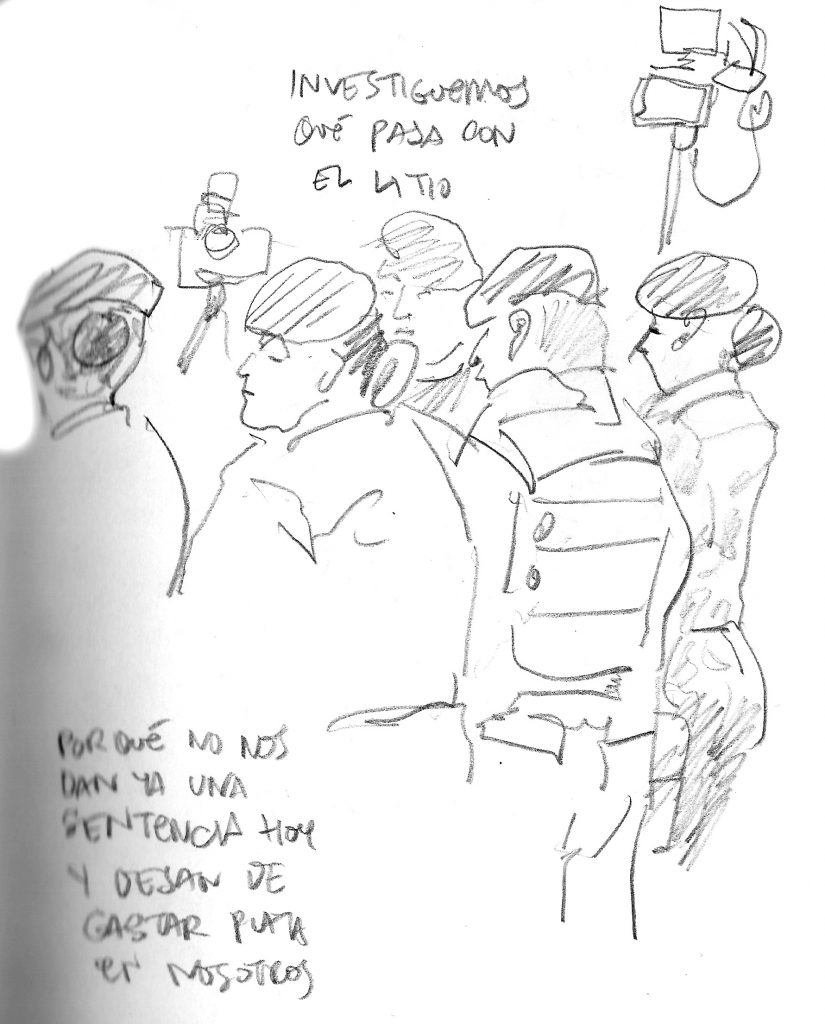 INVESTIGUEMOS
QUÉ PASA CON
EL LITIO
POR QUÉ NO NOS
DAN YA UNA
SENTENCIA HOY
Y DEJAN DE
GASTAR PLATA
EN NOSOTROS